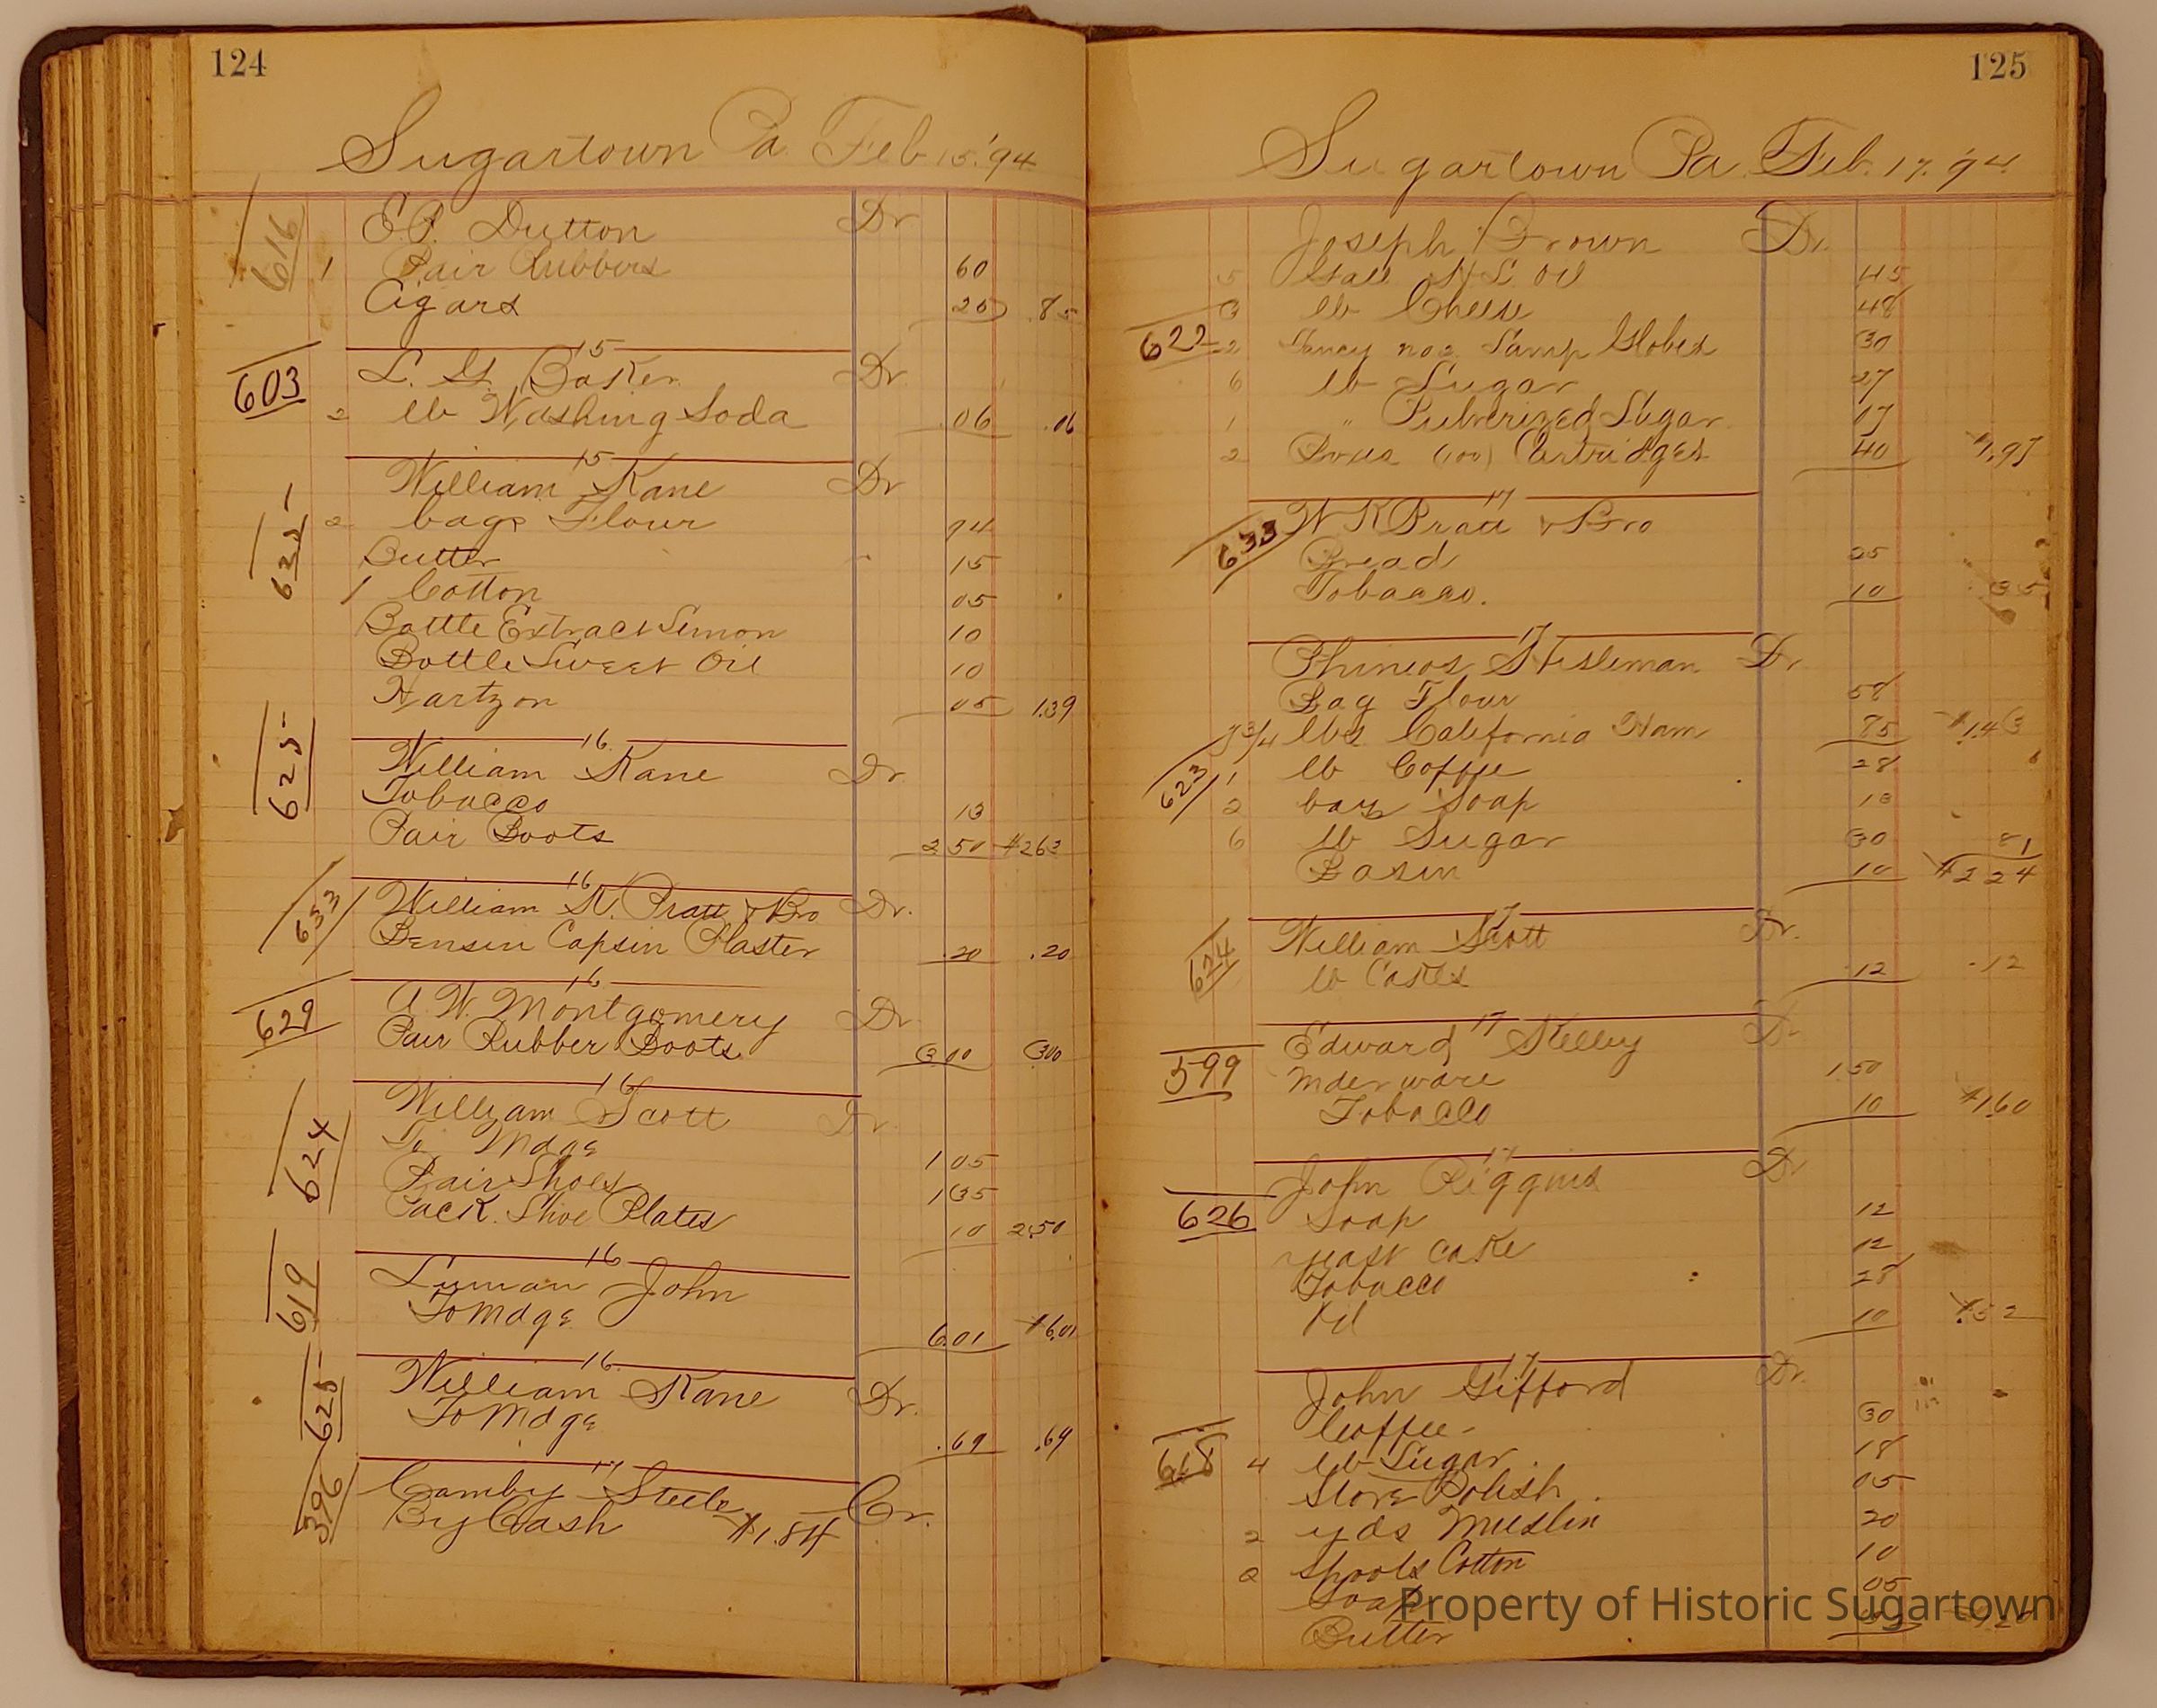 124
Sugartown Pa. Feb 15. '94
616
E.P. Dutton Dr
1 Pair Rubbers 60
Cigars 25 .85
15
603
L. G. Baker Dr
2 lb Washing Soda .06 .06
15
William Kane Dr
625
2 bags Flour 94
Butter 15
1 Cotton 05
Bottle Extract Lemon 10
Bottle Sweet Oil 10
Hartzon 05 1.39
16
625
William Kane Dr
Tobacco 13
Pair Boots 2 50 $2 63
16
633
William K. Pratt & Bro Dr.
Bensin Capsin Plaster .20 .20
16
629
A. W. Montgomery Dr
Pair Rubber Boots 3 00 3 00
16
624
William Scott Dr
To Mdge 1 05
Pair Shoes 1 35
Pack. Shoe Plates 10 2.50
16
619
Luman John
To Mdge 6.01 $6.01
16
625
William Kane Dr.
To Mdge .69 .69
17
396
Camby Steele Cr.
By Cash $1.84
125
Sugartown Pa. Feb. 17. 94
Joseph Brown Dr.
5 Gall H L Oil 45
3 lb Cheese 48
622
2 Fancy no 2 Lamp Globes 30
6 lb Sugar 27
1 " Pulverized Sugar 07
2 Boxes (100) Cartridges 40 1.97
17
633
W K Pratt & Bro
Bread 25
Tobacco. 10 35
17
Phineos Dr
Bag Flour 58
7 3/4 lbs California Ham 85 $1.43
623
1 lb Coffee 28
2 bars Soap 13
6 lb Sugar 30 81
Basin 10 $2 24
17
624
William Scott Dr.
lb Cakes .12 .12
17
599
Edward Kelley Dr
Underware 1.50
Tobacco 10 $1.60
17
John Riggins Dr
626
Soap 12
yeast cake 12
Tobacco 28
10
17
John Gifford Dr.
Coffee 30
618
4 lb Sugar 18
Stove Polish 05
2 yds Muslin 20
2 spools Cotton 10
Soap 05
Butter
Property of Historic Sugartown